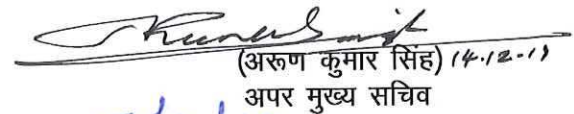 (अरूण कुमार सिंह) 14.12.17
अपर मुख्य सचिव